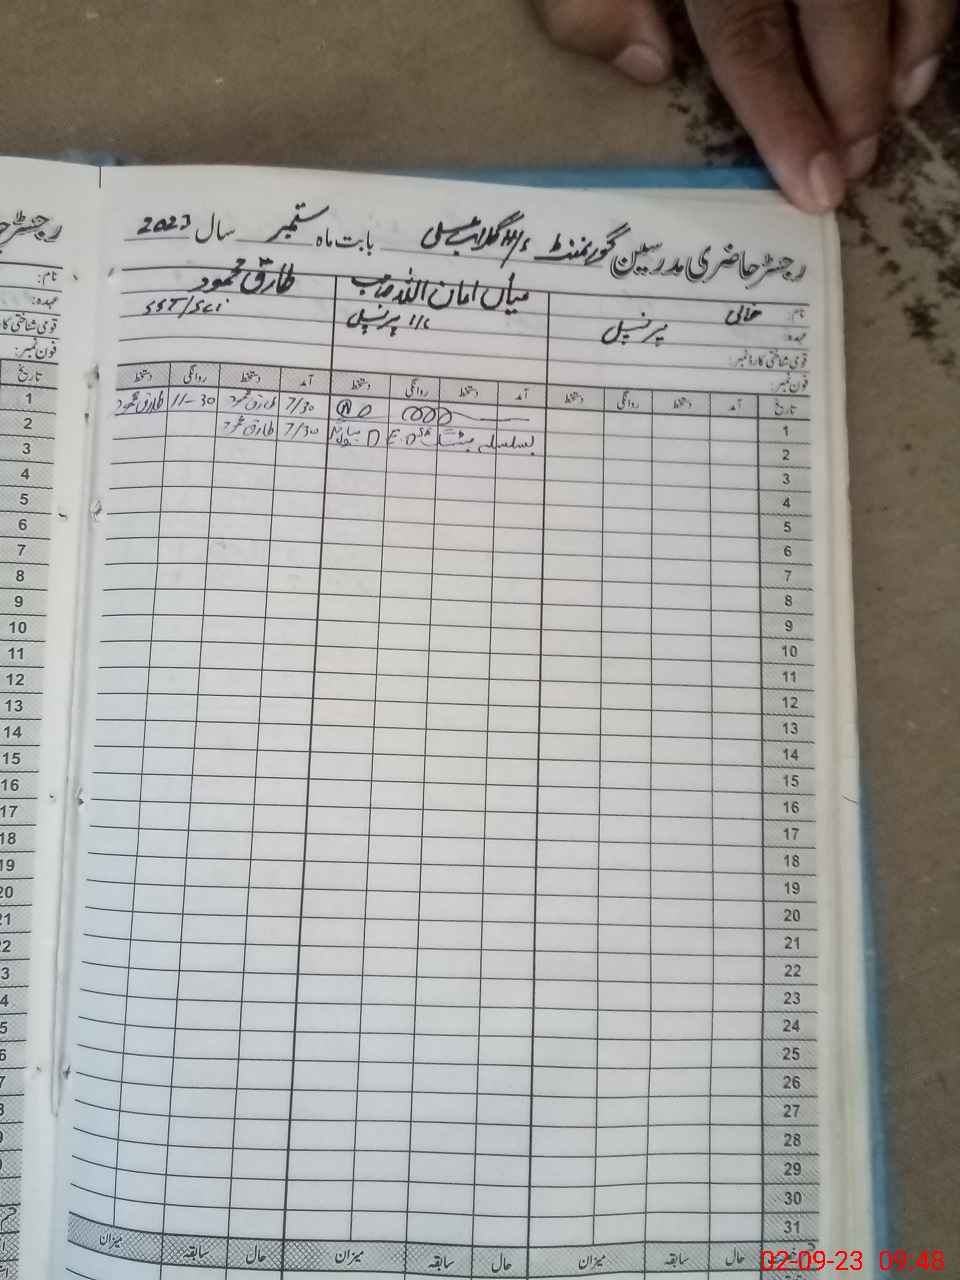 رجسٹر حاضری مدرسین گورنمنٹ بابت ماہ ستمبر سال 2023
نام: خالی میاں امان اللہ صاحب طارق محمود
عہدہ: پرنسپل I/C پرنسپل SST/Sci
قومی شناختی کارڈ نمبر:
فون نمبر:
تاریخ آمد دستخط روانگی دستخط آمد دستخط روانگی دستخط آمد دستخط روانگی دستخط
1 7/30 طارق محمود 11-30 طارق محمود
2 بسلسلہ میٹنگ 7/30 طارق محمود
3
4
5
6
7
8
9
10
11
12
13
14
15
16
17
18
19
20
21
22
23
24
25
26
27
28
29
30
31
حال سابقہ میزان حال سابقہ میزان حال سابقہ میزان
رجسٹر
نام:
عہدہ:
قومی شناختی
فون نمبر:
تاریخ
1
2
3
4
5
6
7
8
9
10
11
12
13
14
15
16
17
18
19
20
02-09-23 09:48